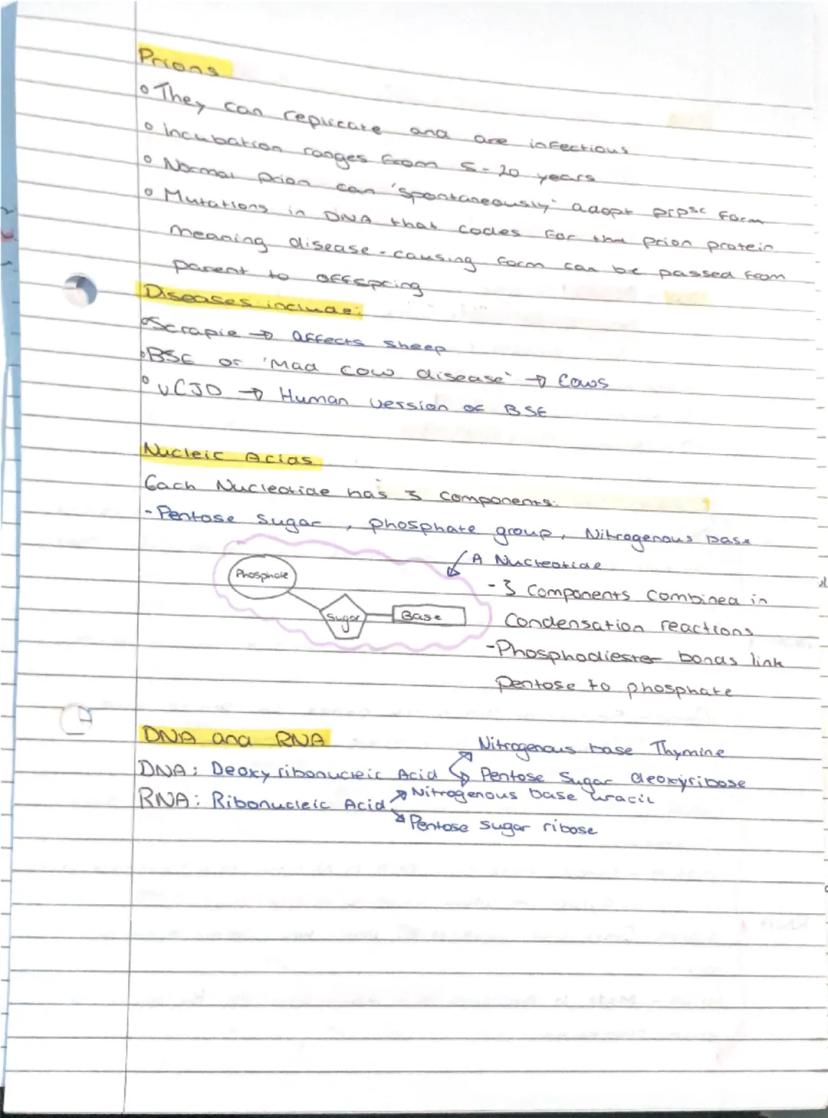 Prions
° They can replicate and are infectious
° Incubation ranges from 5-20 years
° Normal prion can 'spontaneously' adopt prpsc form
° Mutations in DNA that codes for the prion protein
meaning disease-causing form can be passed from
parent to offspring
Diseases include:
° Scrapie → affects sheep
° BSE or 'Mad cow disease' → Cows
° vCJD → Human version of BSE
Nucleic Acids
Each Nucleotide has 3 components:
- Pentose sugar, phosphate group, Nitrogenous base
A Nucleotide
Phosphate
Sugar
Base
- 3 Components combined in
Condensation reactions
- Phosphodiester bonds link
pentose to phosphate
DNA and RNA
Nitrogenous base Thymine
DNA: Deoxyribonucleic Acid → Pentose Sugar deoxyribose
RNA: Ribonucleic Acid → Nitrogenous base uracil
Pentose sugar ribose